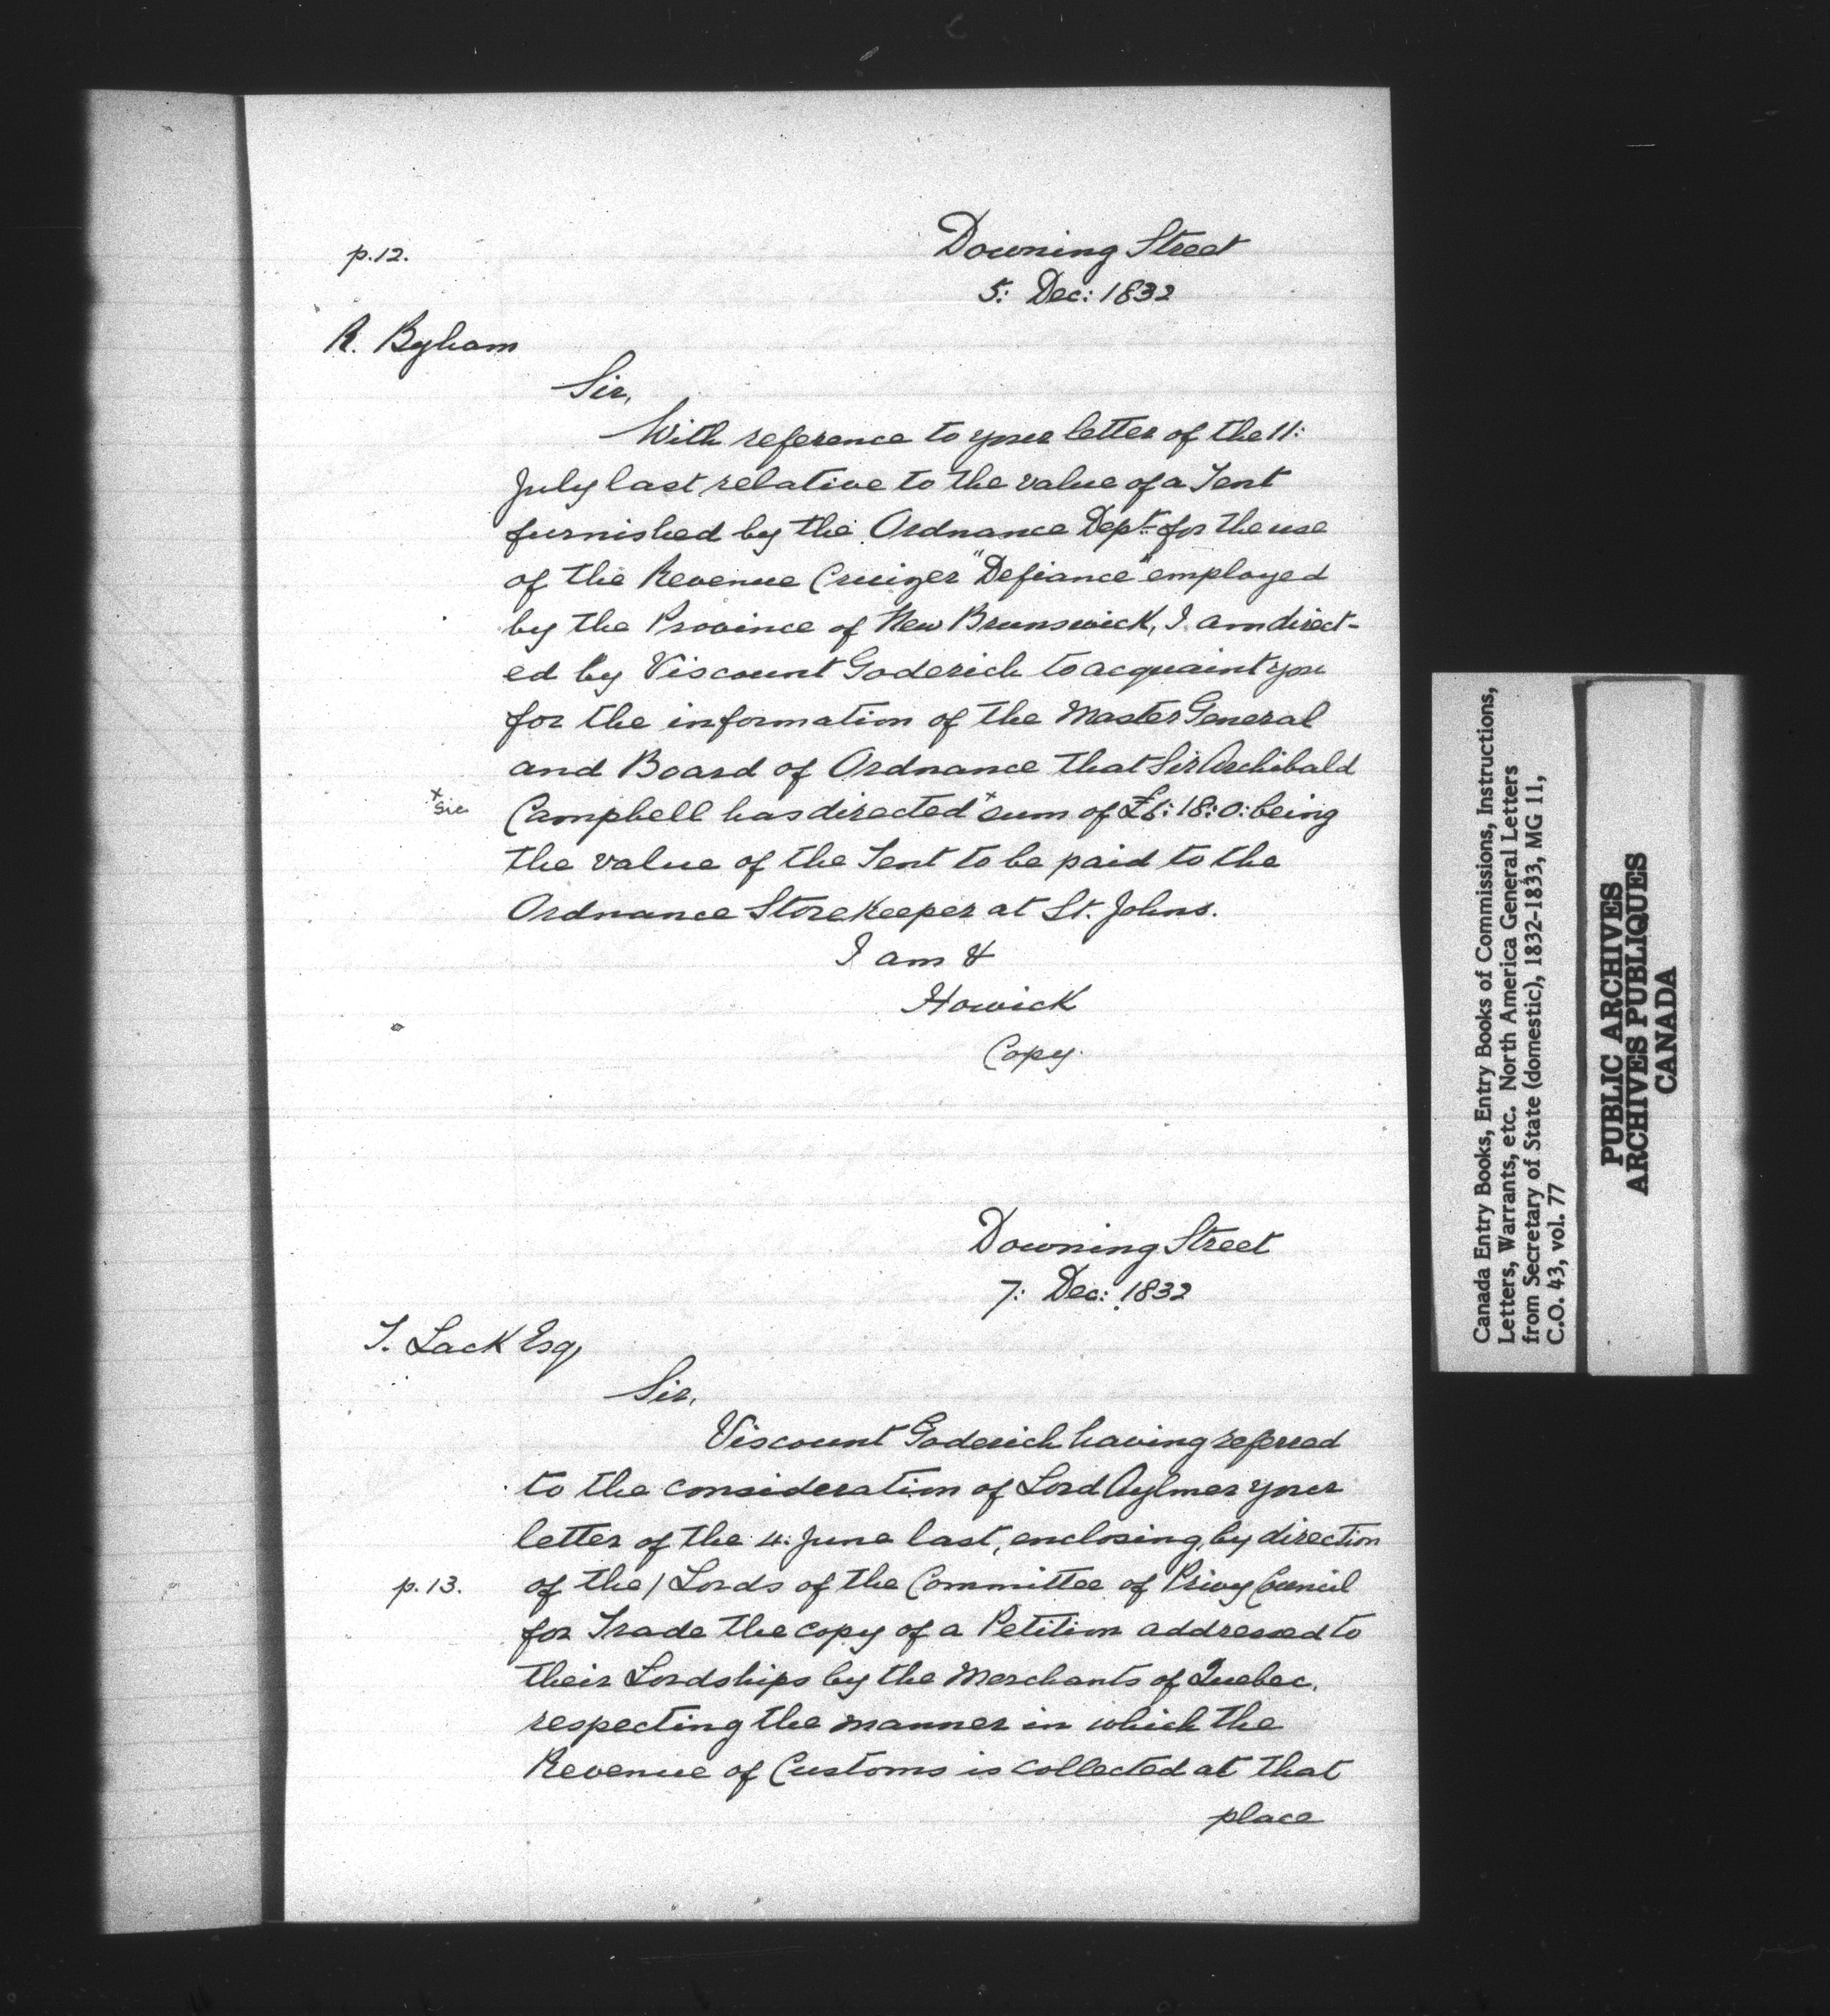 p.12.
Downing Street
5: Dec: 1832
R. Byham
Sir,
With reference to your letter of the 11:
July last relative to the value of a Tent
furnished by the Ordnance Dept. for the use
of the Revenue Cruizer "Defiance" employed
by the Province of New Brunswick, I am direct-
ed by Viscount Goderich to acquaint you
for the information of the Master General
and Board of Ordnance that Sir Archibald
x sic
Campbell has directed x sum of : 18: 0: being
the value of the Tent to be paid to the
Ordnance Storekeeper at St. Johns.
I am &
Howick
Copy.
Downing Street
7: Dec: 1832
T. Lack Esq
Sir,
Viscount Goderich having referred
to the consideration of Lord Aylmer your
letter of the 4: June last, enclosing, by direction
p.13.
of the / Lords of the Committee of Privy Council
for Trade the copy of a Petition addressed to
their Lordships by the Merchants of Quebec,
respecting the manner in which the
Revenue of Customs is collected at that
place
Canada Entry Books, Entry Books of Commissions, Instructions,
Letters, Warrants, etc. North America General Letters
from Secretary of State (domestic), 1832-1833, MG 11,
C.O. 43, vol. 77
PUBLIC ARCHIVES
ARCHIVES PUBLIQUES
CANADA